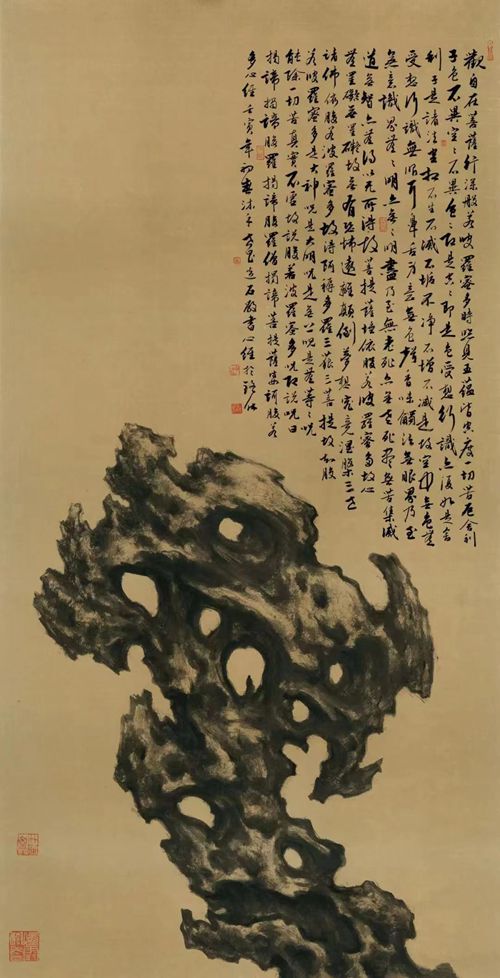 觀自在菩薩行深般若波羅蜜多時照見五蘊皆空度一切苦厄舍利
子色不異空空不異色色即是空空即是色受想行識亦復如是舍
利子是諸法空相不生不滅不垢不净不增不減是故空中無色無
受想行識無眼耳鼻舌身意無色聲香味觸法無眼界乃至
無意識界無無明亦無無明盡乃至無老死亦無老死盡無苦集滅
道無智亦無得以無所得故菩提薩埵依般若波羅蜜多故心
無罣礙無罣礙故無有恐怖遠離顛倒夢想究竟涅槃三世
諸佛依般若波羅蜜多故得阿耨多羅三藐三菩提故知般
若波羅蜜多是大神呪是大明呪是無上呪是無等等呪
能除一切苦真實不虛故說般若波羅蜜多呪即說呪曰
揭諦揭諦般羅揭諦般羅僧揭諦菩提薩婆訶般若
多心經壬寅年初夏沐手石書心經於